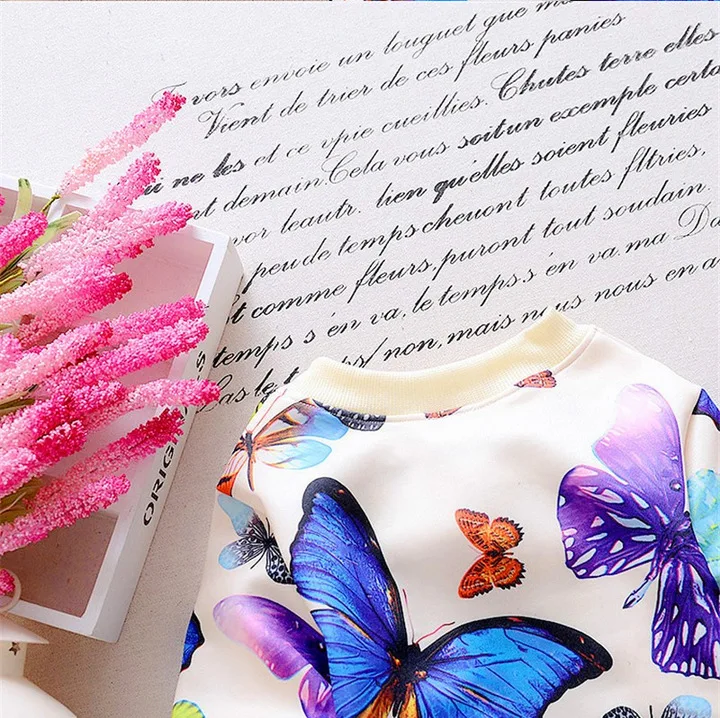 vors envoie un louguet gue
Vient de trier de ces fleurs panies
ne les et ce vpie cueillies. Chutes terre elles
demain. Cela vous soitun exemple
vor leautr. lien qu'elles soient fleuries
peu de temps cheuont toutes fltries,
comme fleurs, puront tout soudain.
temps s'en va, le temps.s'en va. ma Da
non, mais nous nous en
ORIG